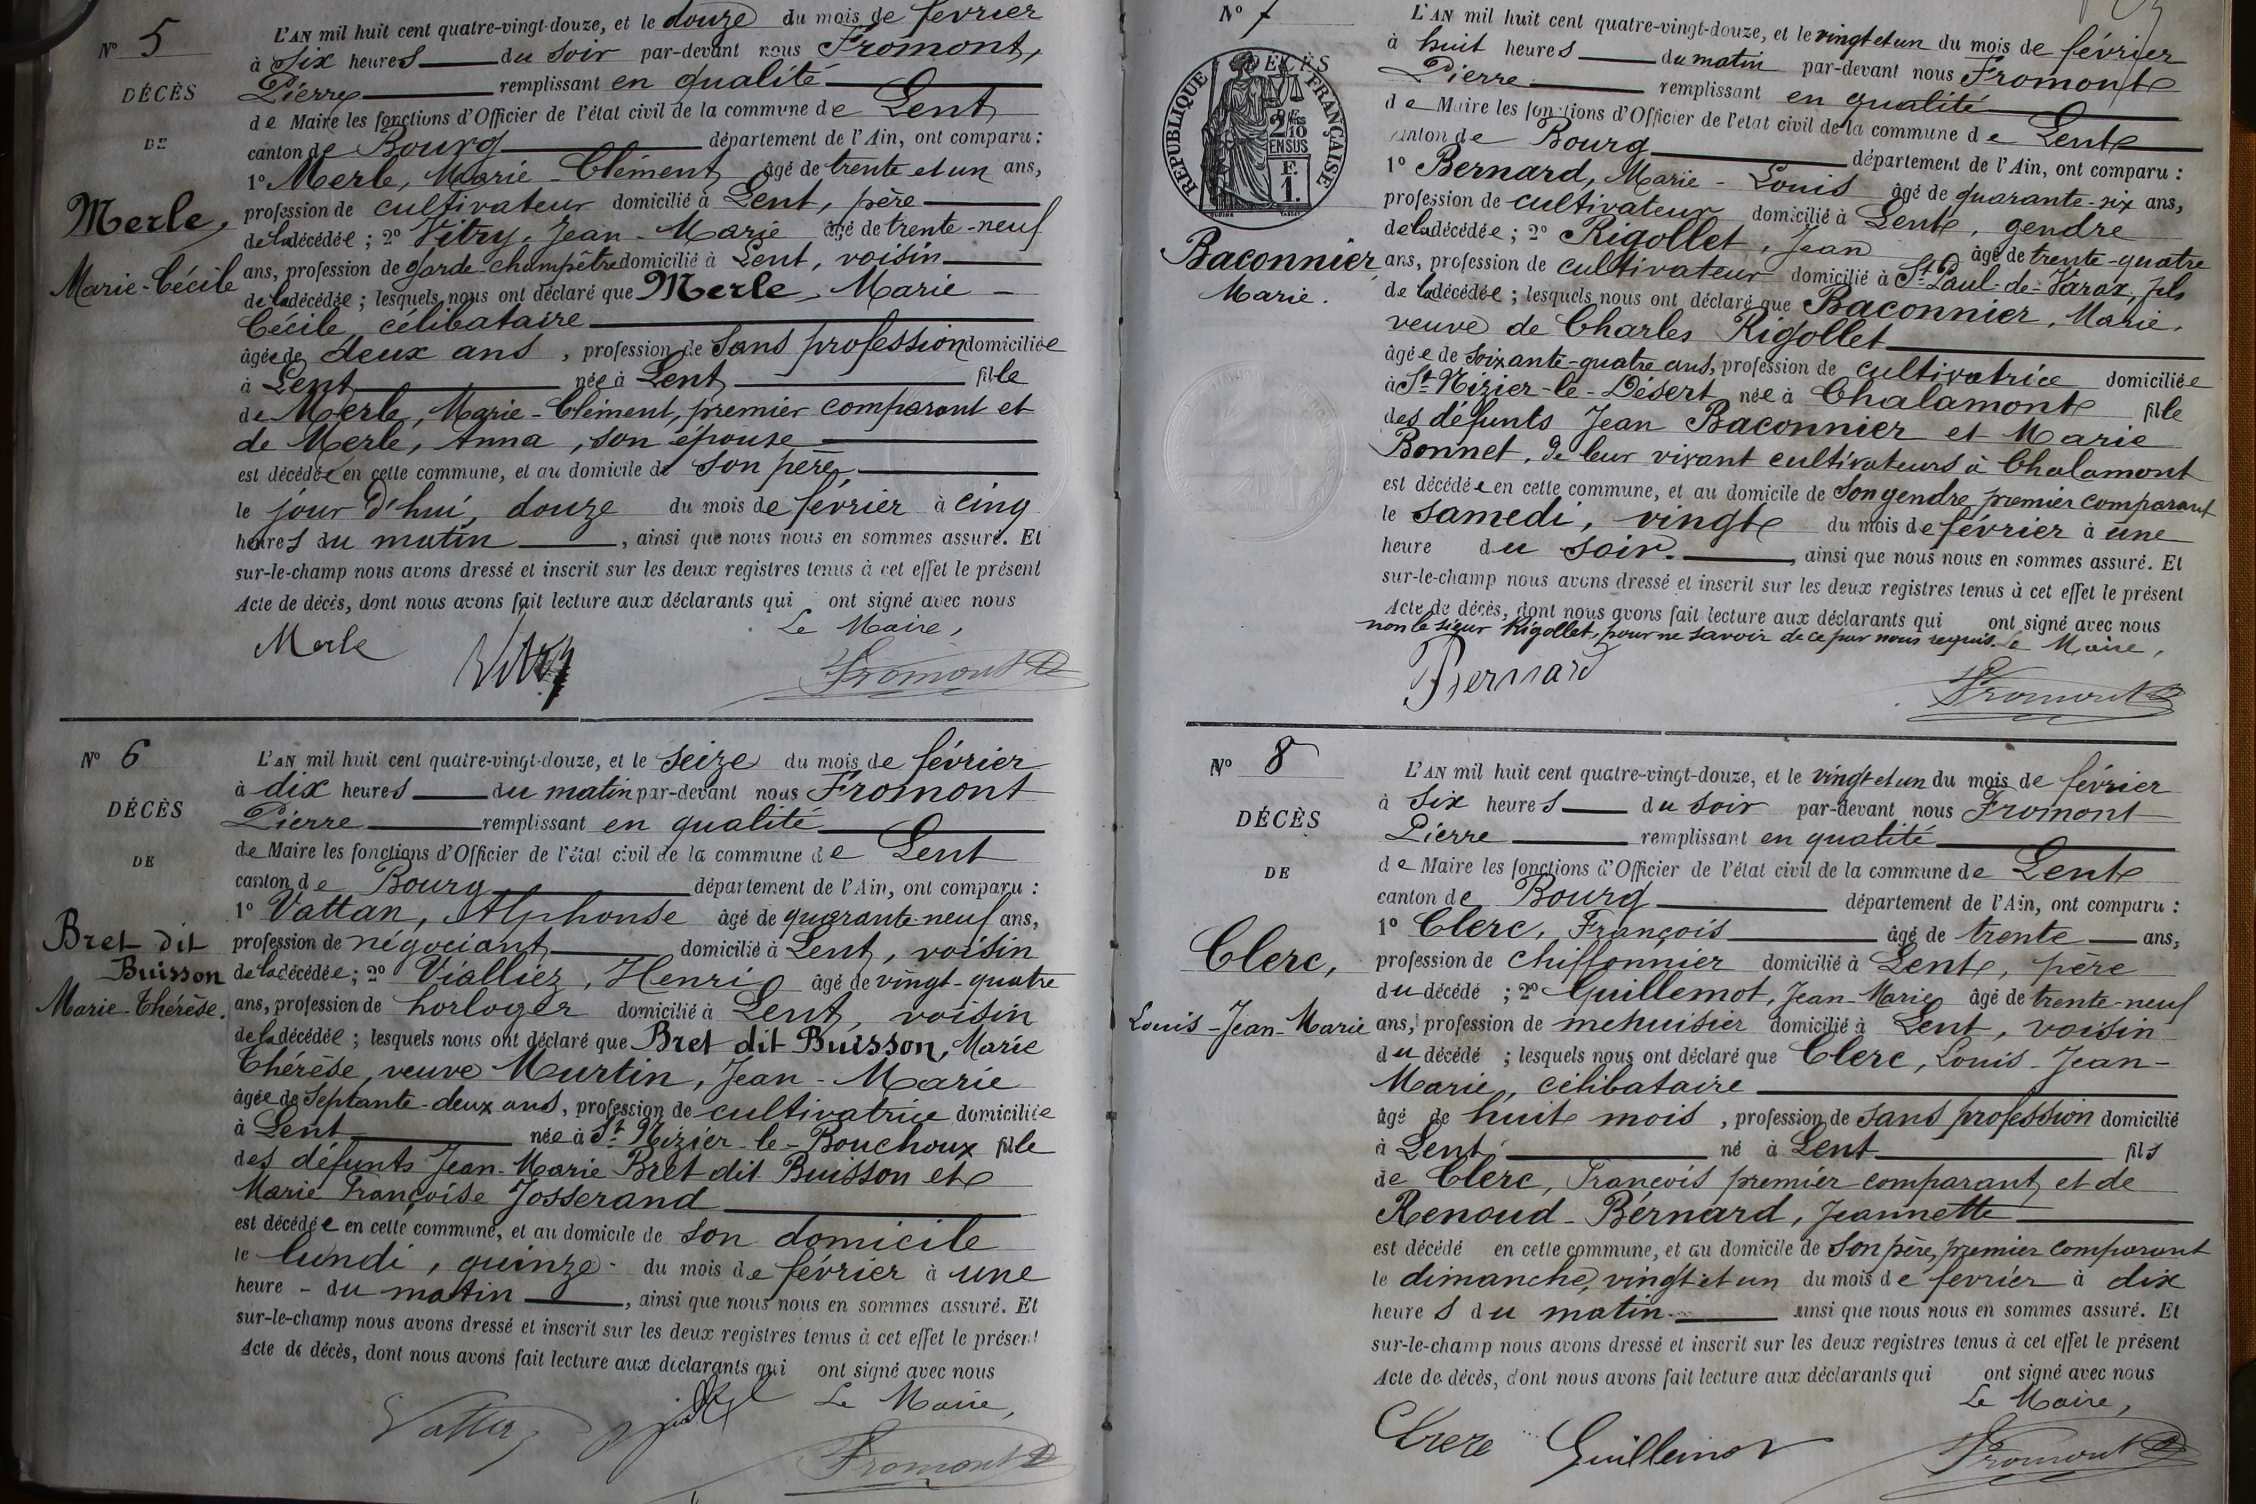 N° 5
DÉCÈS
DE
Merle,
Marie-Cécile
L'AN mil huit cent quatre-vingt-douze, et le douze du mois de février
à six heures du soir par-devant nous Fromont,
Pierre remplissant en qualité
de Maire les fonctions d'Officier de l'état civil de la commune de Lent
canton de Bourg département de l'Ain, ont comparu :
1° Merle, Marie-Clément âgé de trente et un ans,
profession de cultivateur domicilié à Lent, père
de la décédée ; 2° Vitry, Jean-Marie âgé de trente-neuf
ans, profession de garde-champêtre domicilié à Lent, voisin
de la décédée ; lesquels nous ont déclaré que Merle, Marie-
Cécile, célibataire
âgée de deux ans, profession de sans profession domiciliée
à Lent née à Lent fille
de Merle, Marie-Clément, premier comparant et
de Merle, Anna, son épouse
est décédée en cette commune, et au domicile de son père,
le jour d'hui, douze du mois de février à cinq
heures du matin, ainsi que nous nous en sommes assuré. Et
sur-le-champ nous avons dressé et inscrit sur les deux registres tenus à cet effet le présent
Acte de décès, dont nous avons fait lecture aux déclarants qui ont signé avec nous
Le Maire,
Merle Vitry Fromont
N° 6
DÉCÈS
DE
Bret dit
Buisson
Marie-Thérèse.
L'AN mil huit cent quatre-vingt-douze, et le seize du mois de février
à dix heures du matin par-devant nous Fromont
Pierre remplissant en qualité
de Maire les fonctions d'Officier de l'état civil de la commune de Lent
canton de Bourg département de l'Ain, ont comparu :
1° Vattan, Alphonse âgé de quarante-neuf ans,
profession de négociant domicilié à Lent, voisin
de la décédée ; 2° Vialliez, Henri âgé de vingt-quatre
ans, profession de horloger domicilié à Lent, voisin
de la décédée ; lesquels nous ont déclaré que Bret dit Buisson, Marie
Thérèse, veuve Murtin, Jean-Marie
âgée de septante-deux ans, profession de cultivatrice domiciliée
à Lent née à St Nizier-le-Bouchoux fille
des défunts Jean-Marie Bret dit Buisson et
Marie Françoise Josserand
est décédée en cette commune, et au domicile de son domicile
le lundi, quinze du mois de février à une
heure - du matin, ainsi que nous nous en sommes assuré. Et
sur-le-champ nous avons dressé et inscrit sur les deux registres tenus à cet effet le présent
Acte de décès, dont nous avons fait lecture aux déclarants qui ont signé avec nous
Le Maire,
Vattan Fromont
N° 7
DÉCÈS
RÉPUBLIQUE FRANÇAISE
2/10 EN SUS
1 F.
Baconnier
Marie.
L'AN mil huit cent quatre-vingt-douze, et le vingt et un du mois de février
à huit heures du matin par-devant nous Fromont
Pierre remplissant en qualité
de Maire les fonctions d'Officier de l'état civil de la commune de Lent
canton de Bourg département de l'Ain, ont comparu :
1° Bernard, Marie-Louis âgé de quarante-six ans,
profession de cultivateur domicilié à Lent, gendre
de la décédée ; 2° Rigollet, Jean âgé de trente-quatre
ans, profession de cultivateur domicilié à St Paul-de-Varax, fils
de la décédée ; lesquels nous ont déclaré que Baconnier, Marie,
veuve de Charles Rigollet
âgée de soixante-quatre ans, profession de cultivatrice domiciliée
à St Nizier-le-Désert née à Chalamont fille
des défunts Jean Baconnier et Marie
Bonnet, de leur vivant cultivateurs à Chalamont
est décédée en cette commune, et au domicile de son gendre, premier comparant
le samedi, vingt du mois de février à une
heure du soir, ainsi que nous nous en sommes assuré. Et
sur-le-champ nous avons dressé et inscrit sur les deux registres tenus à cet effet le présent
Acte de décès, dont nous avons fait lecture aux déclarants qui ont signé avec nous
non le sieur Rigollet, pour ne savoir de ce par nous requis. Le Maire,
Bernard Fromont
N° 8
DÉCÈS
DE
Clerc,
Louis-Jean-Marie
L'AN mil huit cent quatre-vingt-douze, et le vingt et un du mois de février
à six heures du soir par-devant nous Fromont
Pierre remplissant en qualité
de Maire les fonctions d'Officier de l'état civil de la commune de Lent
canton de Bourg département de l'Ain, ont comparu :
1° Clerc, François âgé de trente ans,
profession de chiffonnier domicilié à Lent, père
du décédé ; 2° Guillemot, Jean-Marie âgé de trente-neuf
ans, profession de menuisier domicilié à Lent, voisin
du décédé ; lesquels nous ont déclaré que Clerc, Louis-Jean-
Marie, célibataire
âgé de huit mois, profession de sans profession domicilié
à Lent né à Lent fils
de Clerc, François premier comparant et de
Renoud-Bernard, Jeannette
est décédé en cette commune, et au domicile de son père, premier comparant
le dimanche, vingt et un du mois de février à dix
heures du matin. ainsi que nous nous en sommes assuré. Et
sur-le-champ nous avons dressé et inscrit sur les deux registres tenus à cet effet le présent
Acte de décès, dont nous avons fait lecture aux déclarants qui ont signé avec nous
Le Maire,
Clerc Guillemot Fromont